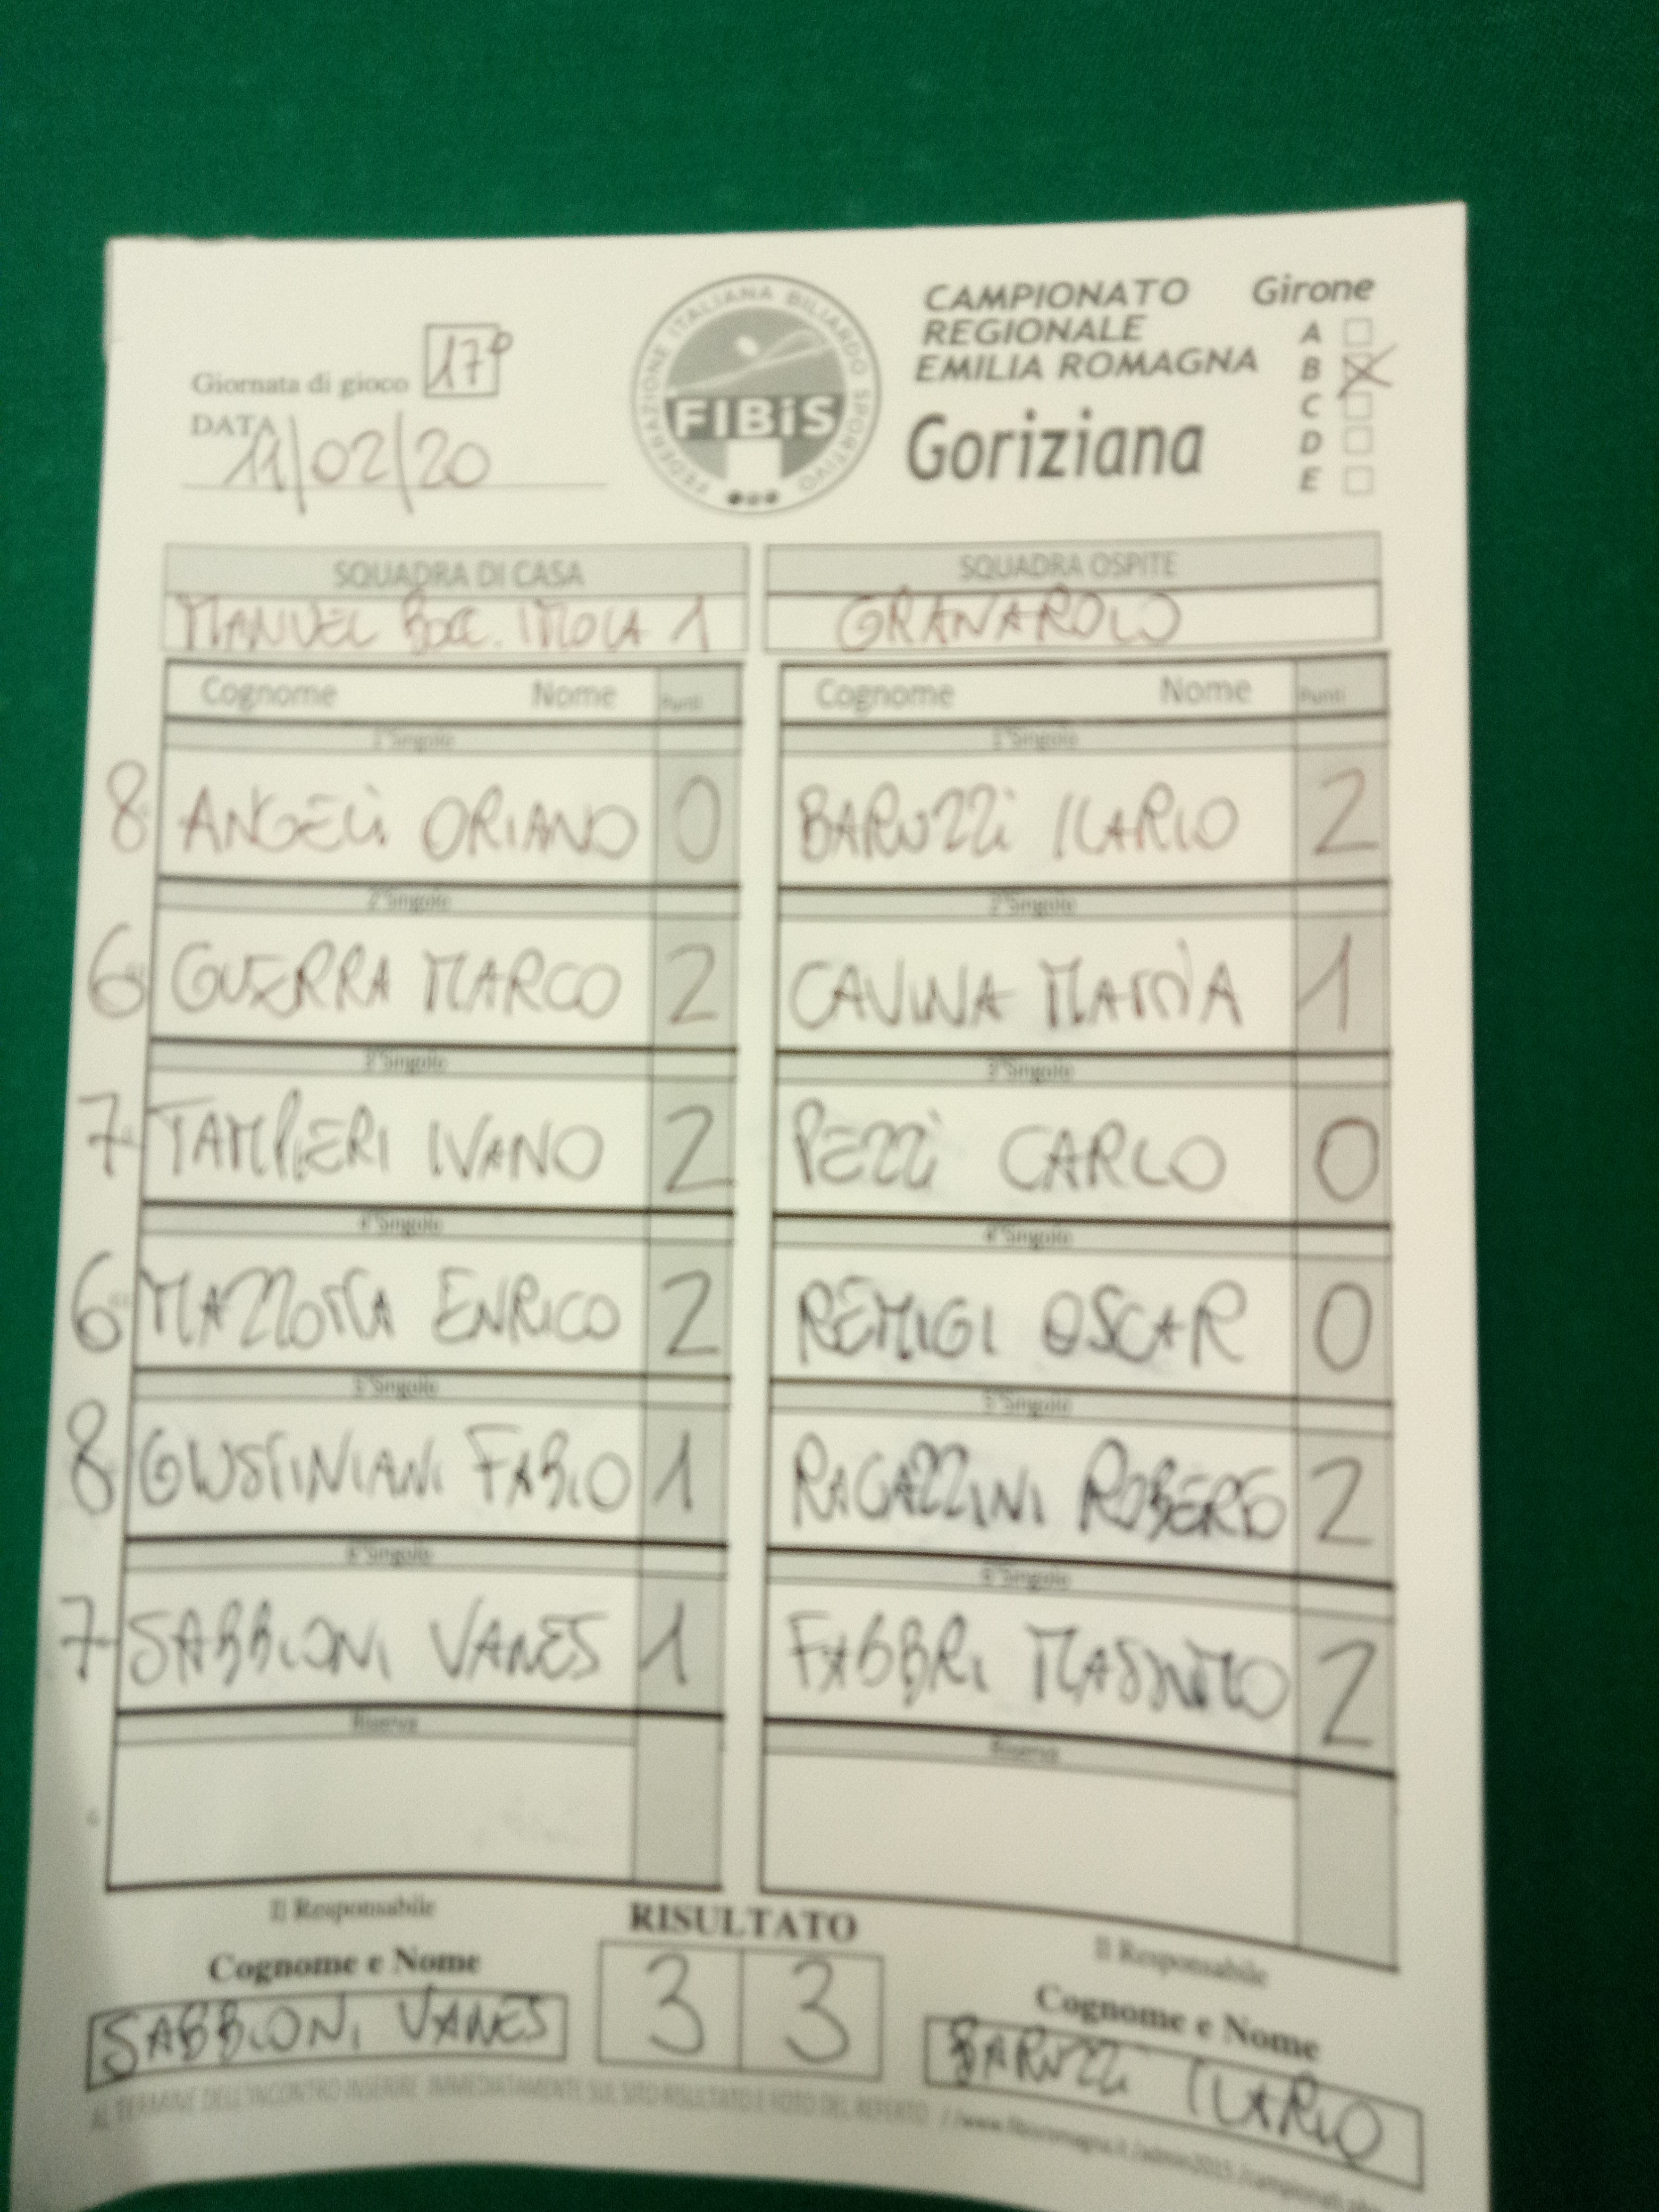 CAMPIONATO
REGIONALE
EMILIA ROMAGNA
Goriziana
Girone
A
B
C
D
E
FEDERAZIONE ITALIANA BILIARDO SPORTIVO
FIBiS
Giornata di gioco 17°
DATA
11/02/20
SQUADRA DI CASA
MANUEL BOCC. IMOLA 1
SQUADRA OSPITE
GRANAROLO
Cognome Nome Punti
Cognome Nome Punti
1°Singolo
1°Singolo
8 ANGELI ORIANO 0
BARUZZI ILARIO 2
2°Singolo
2°Singolo
6 GUERRA MARCO 2
CAVINA MATTIA 1
3°Singolo
3°Singolo
7 TAMPIERI IVANO 2
PEZZI CARLO 0
4°Singolo
4°Singolo
6 MAZZOTTA ENRICO 2
REMIGI OSCAR 0
5°Singolo
5°Singolo
8 GIUSTINIANI FABIO 1
RAGAZZINI ROBERTO 2
6°Singolo
6°Singolo
7 SABBIONI VANES 1
FABBRI MASSIMO 2
Riserva
Riserva
Il Responsabile
Cognome e Nome
SABBIONI VANES
RISULTATO
3 3
Il Responsabile
Cognome e Nome
BARUZZI ILARIO
AL TERMINE DELL'INCONTRO INSERIRE IMMEDIATAMENTE SUL SITO RISULTATO E FOTO DEL REFERTO